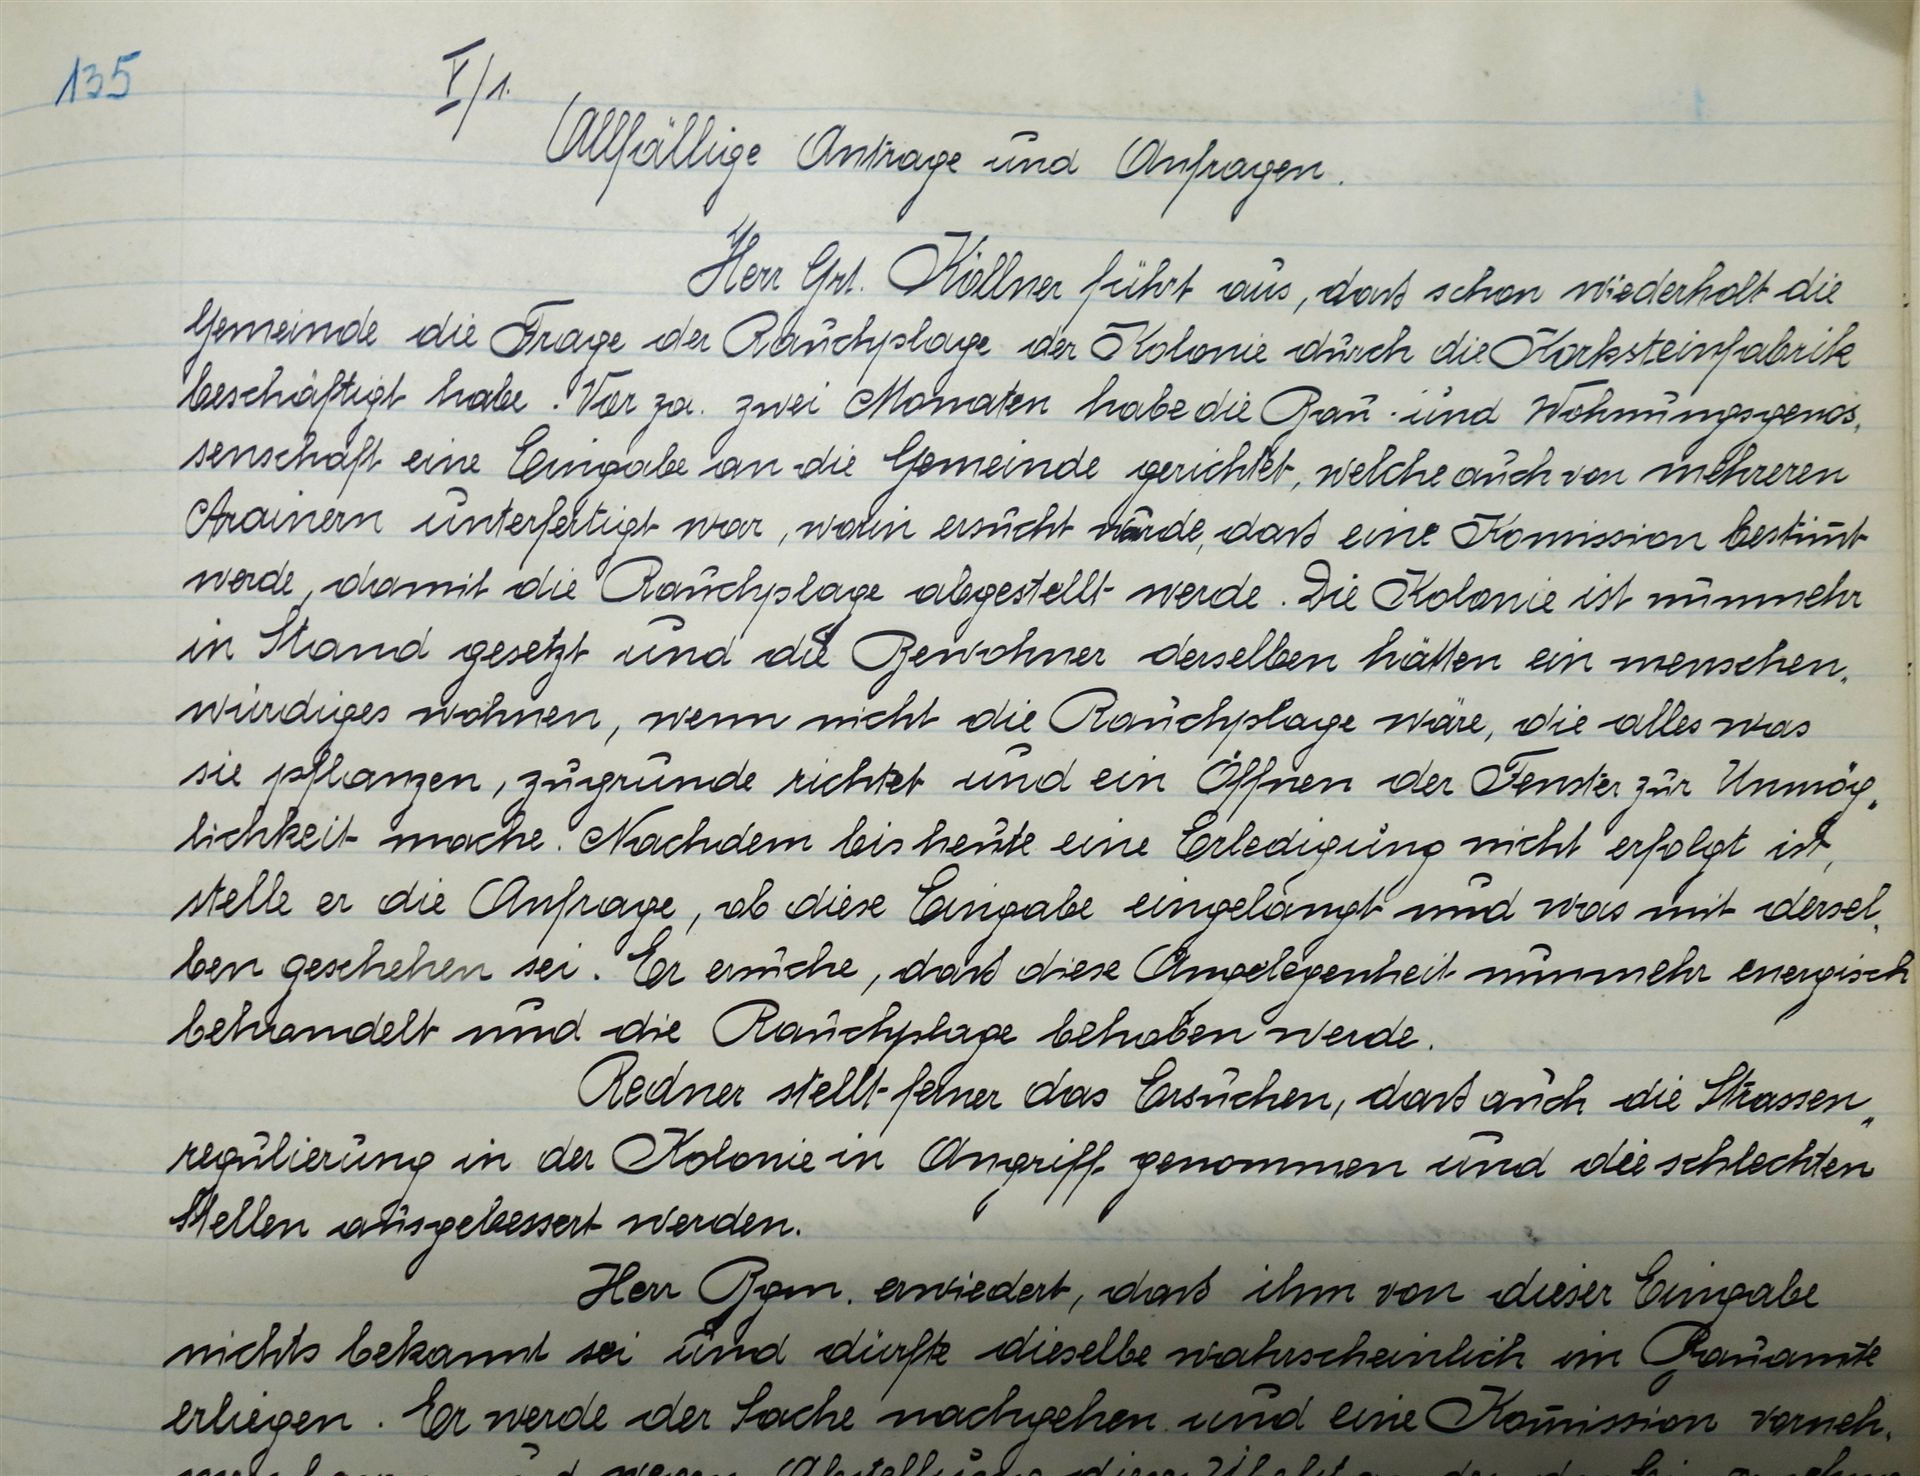 135
V/1.
Allfällige Antrage und Anfragen.
Herr Grt. Köllner führt aus, daß schon wiederholt die
Gemeinde die Frage der Rauchplage der Kolonie durch die Korksteinfabrik
beschäftigt habe. Vor za. zwei Monaten habe die Bau- und Wohnungsgenos„
senschaft eine Eingabe an die Gemeinde gerichtet, welche auch von mehreren
Arainern unterfertigt war, worin ersucht würde, daß eine Komission bestim̅t
werde, damit die Rauchplage abgestellt werde. Die Kolonie ist nunmehr
in Stand gesetzt und die Bewohner derselben hätten ein menschen„
würdiges wohnen, wenn nicht die Rauchplage wäre, die alles was
sie pflanzen, zugrunde richtet und ein Öffnen der Fenster zur Unmög„
lichkeit mache. Nachdem bis heute eine Erledigung nicht erfolgt ist,
stelle er die Anfrage, ob diese Eingabe eingelangt und was mit dersel„
ben geschehen sei. Er ersuche, daß diese Angelegenheit nunmehr energisch
behandelt und die Rauchplage behoben werde.
Redner stellt ferner das Ersuchen, daß auch die Strassen„
regulierung in der Kolonie in Angriff genommen und die schlechten
Stellen ausgebessert werden.
Herr Bgm. erwiedert, daß ihm von dieser Eingabe
nichts bekannt sei und dürfte dieselbe wahrscheinlich im Bauamte
erliegen. Er werde der Sache nachgehen und eine Kom̅ission vorneh„